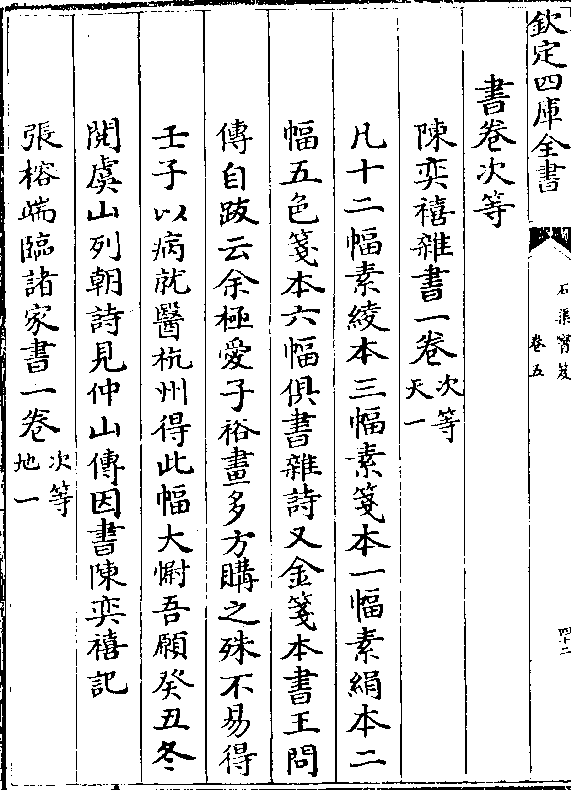 欽定四庫全書
石渠寳笈
卷五
四十二
書卷次等
陳奕禧雜書一卷次等天一
凡十二幅素綾本三幅素箋本一幅素絹本二
幅五色箋本六幅俱書雜詩又金箋本書王問
傳自跋云余極愛子裕畫多方購之殊不易得
壬子以病就醫杭州得此幅大慰吾願癸丑冬
閱虞山列朝詩見仲山傳因書陳奕禧記
張榕端臨諸家書一卷次等地一